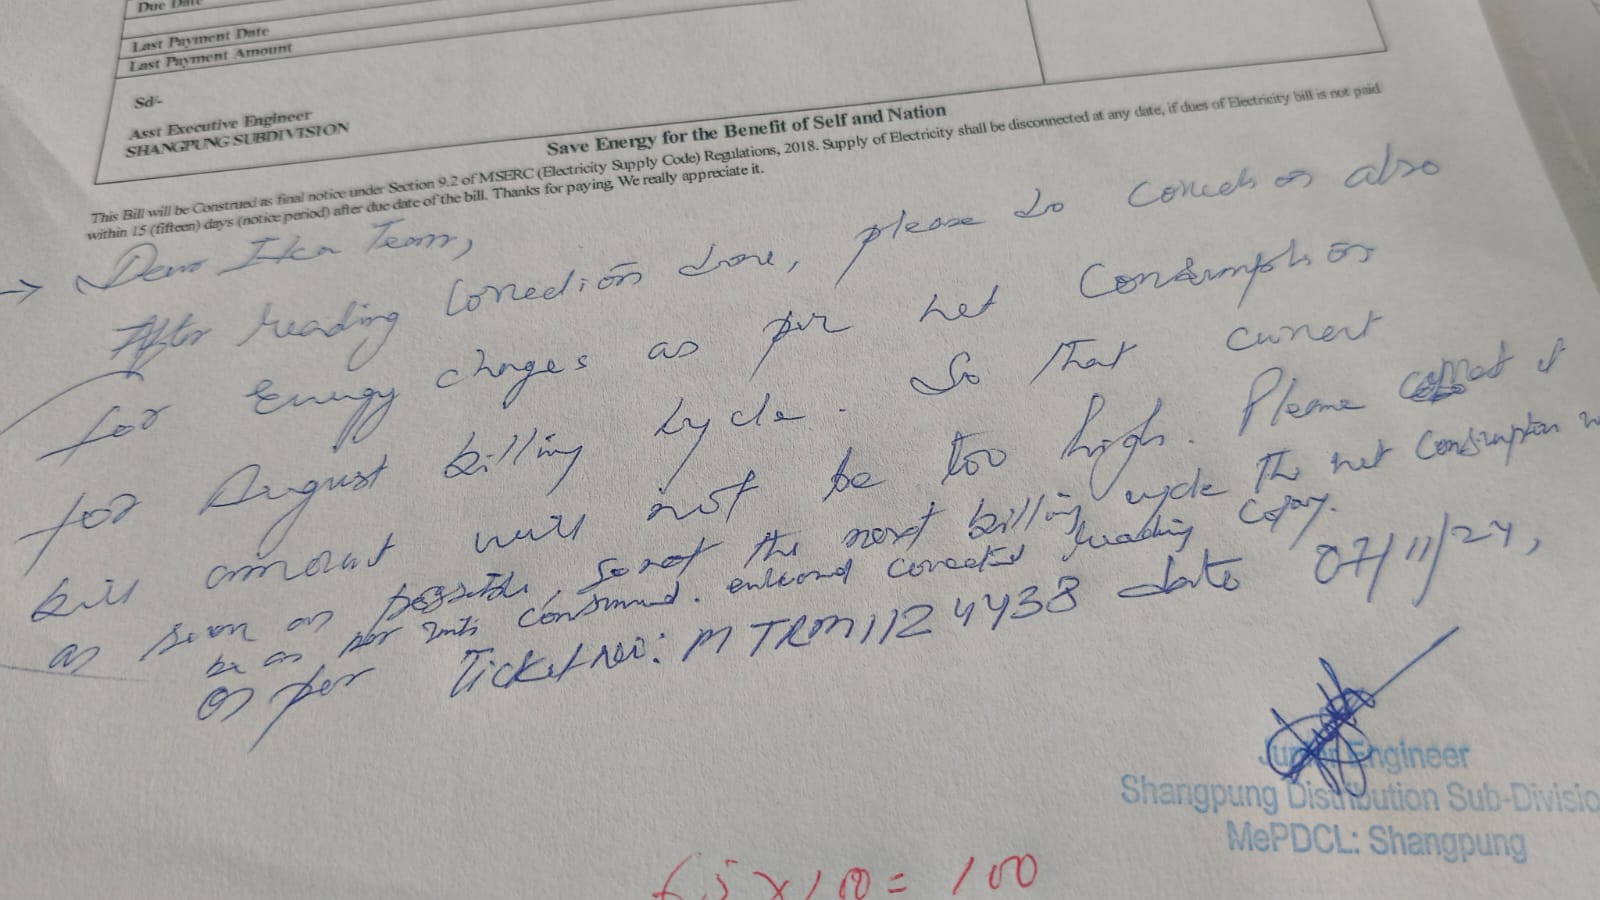 Due Date
Last Payment Date
Last Payment Amount
Sd/-
Asst Executive Engineer
SHANGPUNG SUBDIVISION
Save Energy for the Benefit of Self and Nation
This Bill will be Construed as final notice under Section 9.2 of MSERC (Electricity Supply Code) Regulations, 2018. Supply of Electricity shall be disconnected at any date, if dues of Electricity bill is not paid
within 15 (fifteen) days (notice period) after due date of the bill. Thanks for paying, We really appreciate it.
→ Dear Team,
After reading correction done, please do correction also
for Energy charges as per net Consumption
for August billing cycle. So that current
bill amount will not be too high. Please correct it
as soon as possible, the next billing cycle the net Consumption
be as per units consumed. corrected reading copy.
as per Ticket No: MTRM1124438 date 07/11/24,
Junior Engineer
Shangpung Distribution Sub-Divisio
MePDCL: Shangpung
x 100 = 100